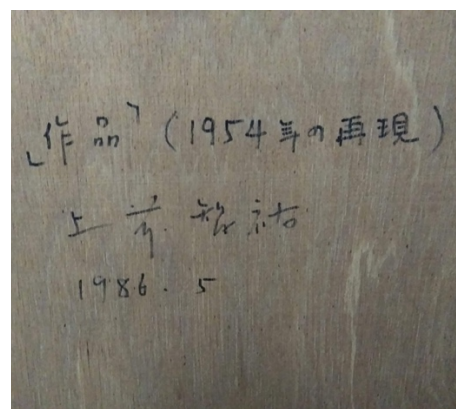 「作品」(1954年の再現)
上前智祐
1986.5